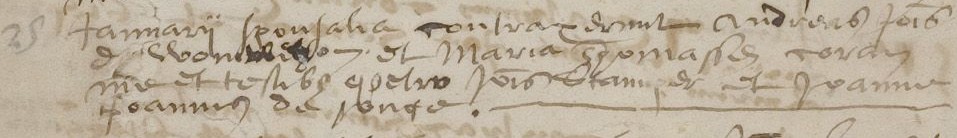 25 Januarii sponsalia contraxerunt Andreas Jois
de et Maria Thomassen coram
me et testibus petro Jois et Joanne
Joannis de Jonge.